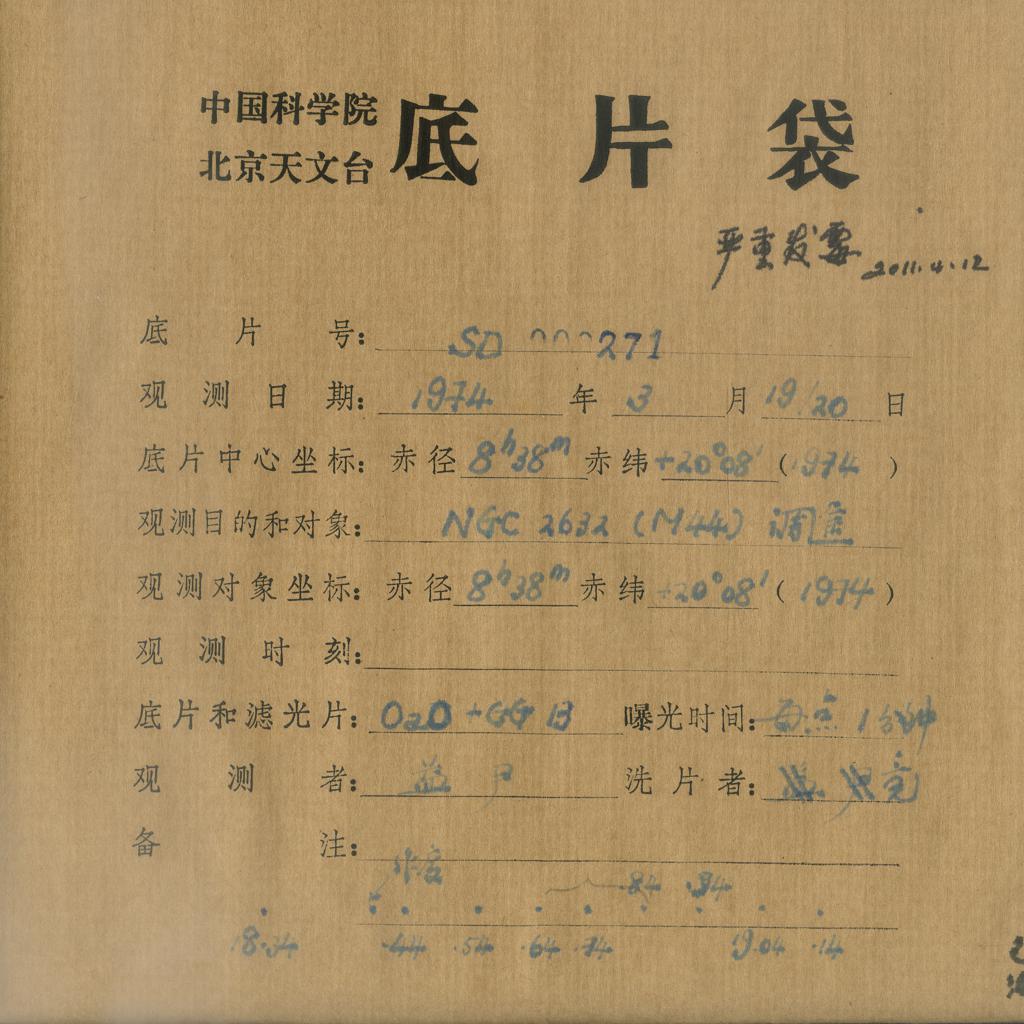 中国科学院
北京天文台
底片袋
严重发霉 2011.4.12
底片号: SD 000271
观测日期: 1974 年 3 月 19/20 日
底片中心坐标: 赤径 8h38m 赤纬 +20°08′ (1974)
观测目的和对象: NGC 2632 (M44) 调焦
观测对象坐标: 赤径 8h38m 赤纬 +20°08′ (1974)
观测时刻:
底片和滤光片: OaO + GG 13 曝光时间: 每点 1分钟
观测者: 洗片者: 亮
备注:
.84 .94
18.34 .44 .54 .64 .74 19.04 .14